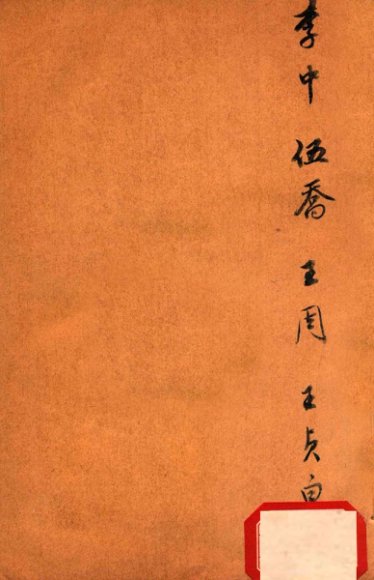 李中 伍喬 王周 王贞白